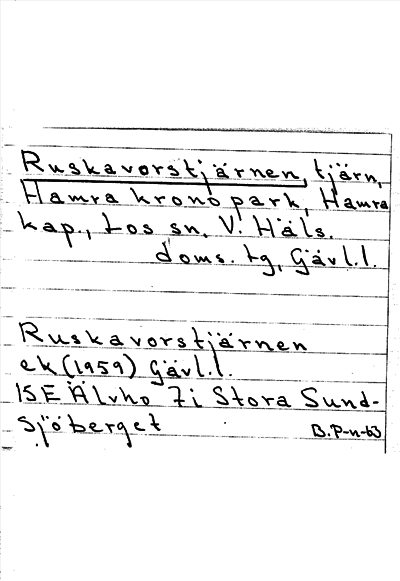 Ruskavorstjärnen, tjärn,
Hamra kronopark, Hamra
kap., Los sn, V. Häls.
doms. tg, Gävl.l.
Ruskavorstjärnen
ek (1959) Gävl.l.
15E Älvho 7i Stora Sund-
sjöberget
B.P-n-63